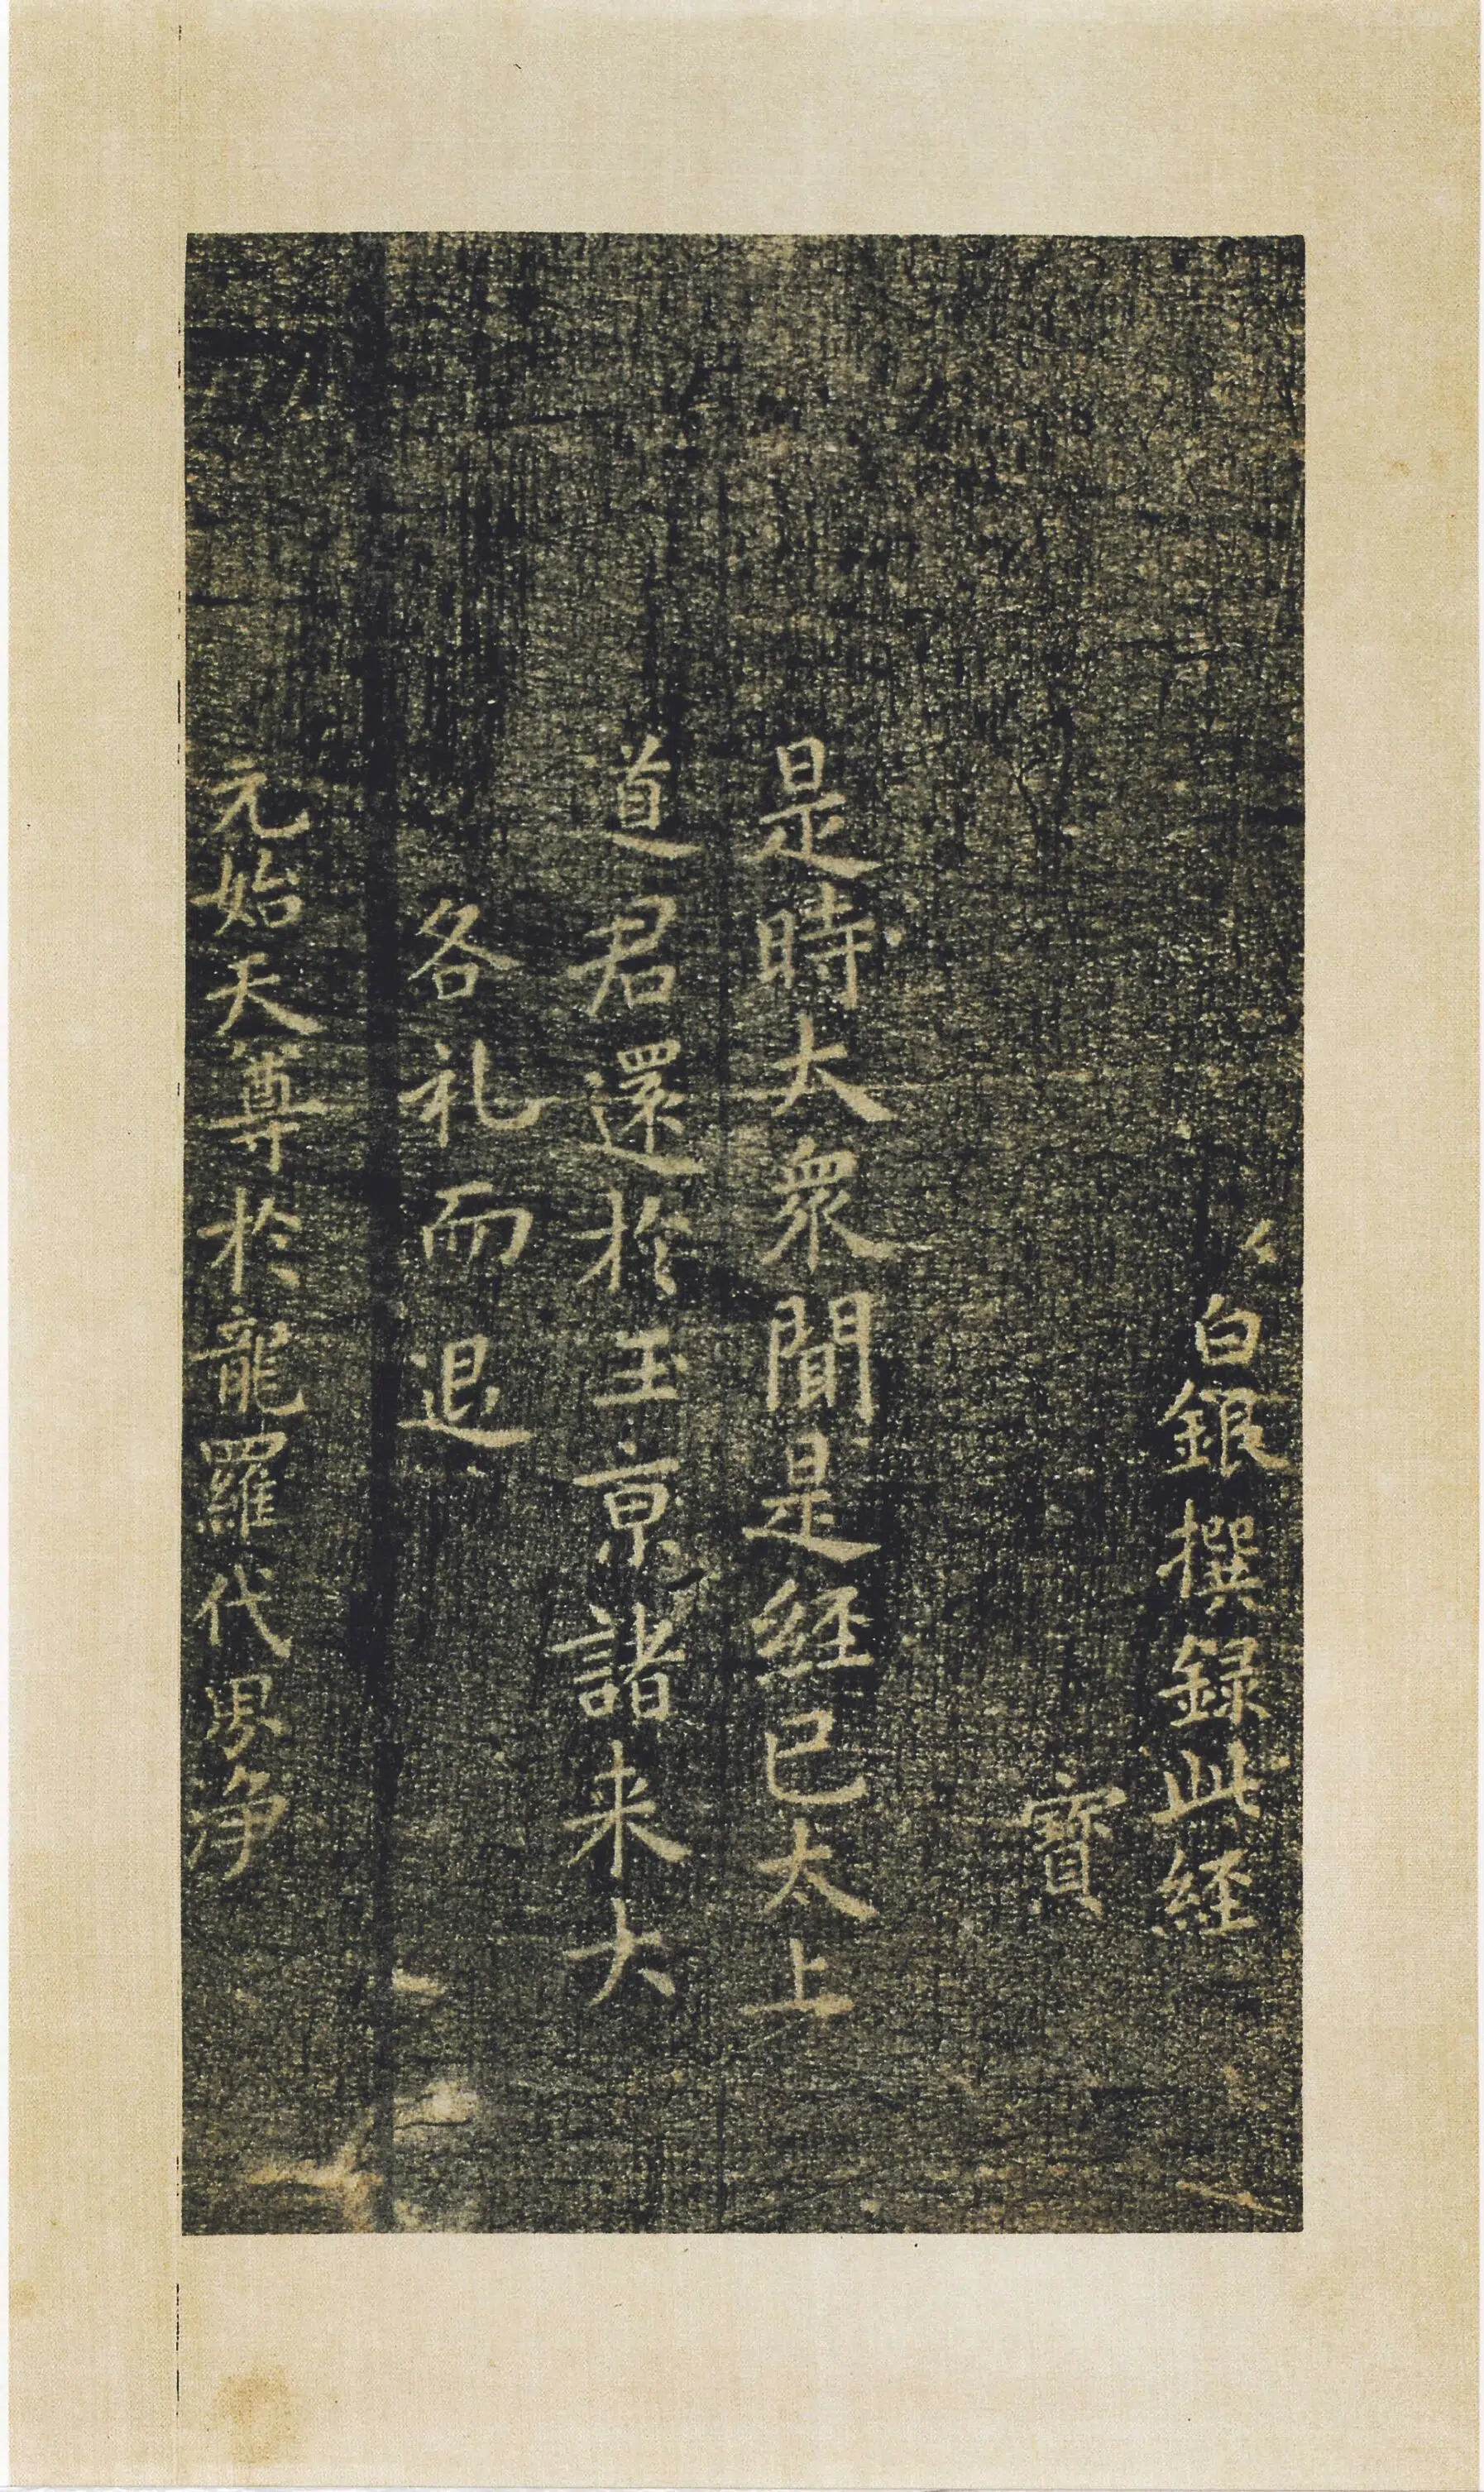 白銀撰録此経
寳
是時大衆聞是経已太上
道君還於玉京諸来大
各礼而退
元始天尊於龍羅代界净